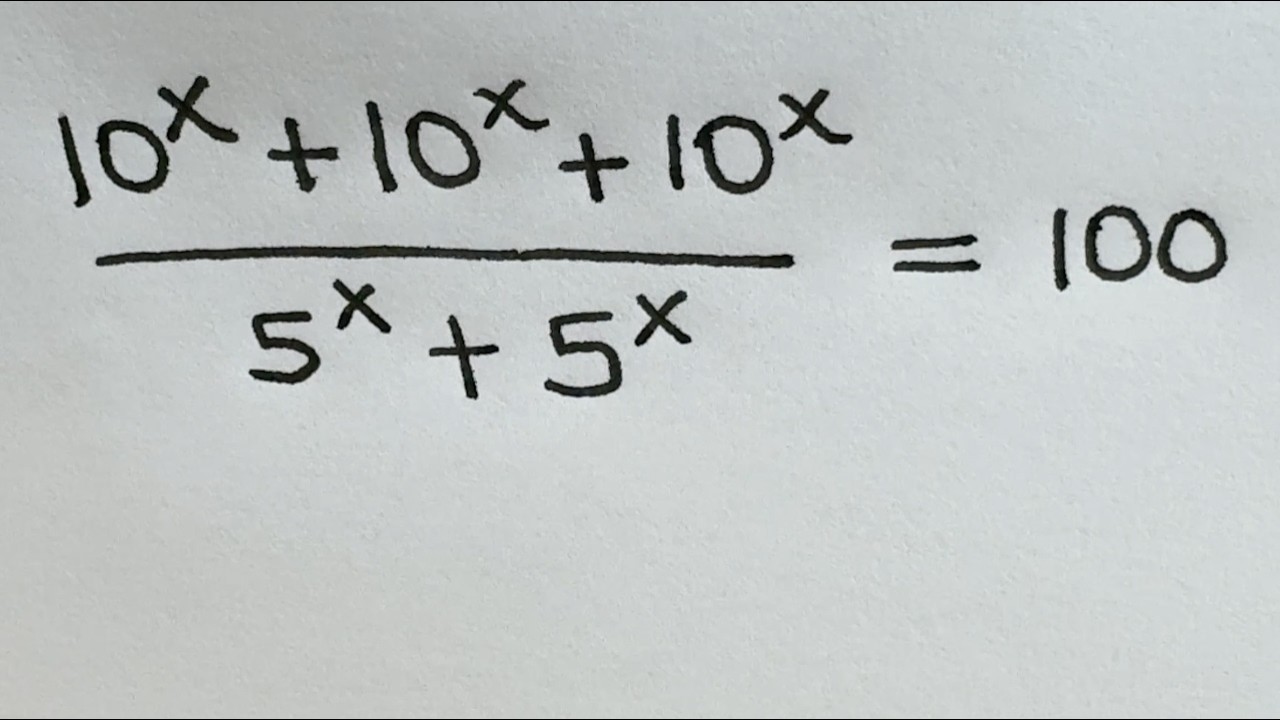 10ˣ + 10ˣ + 10ˣ
5ˣ + 5ˣ = 100